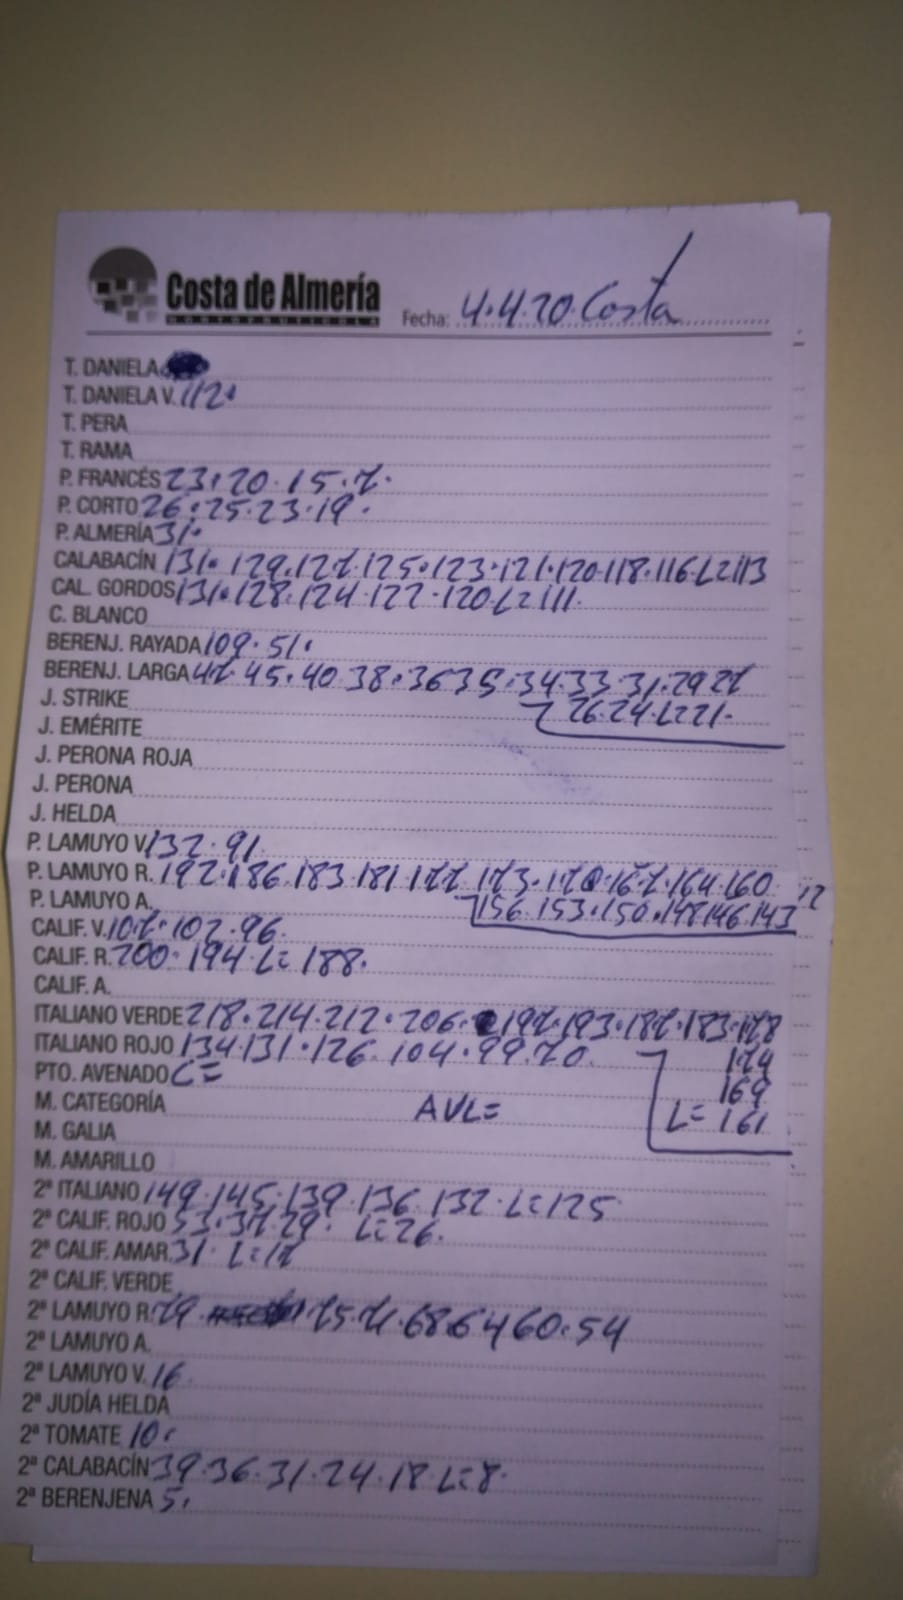 Costa de Almería
HORTOFRUTÍCOLA
Fecha: 4.4.20. Costa
T. DANIELA
T. DANIELA V. 112.
T. PERA
T. RAMA
P. FRANCÉS 23.20.15.7.
P. CORTO 26.25.23.19.
P. ALMERÍA 31.
CALABACÍN 131.129.127.125.123.121.120.118.116.L=113
CAL. GORDOS 131.128.124.122.120.L=111.
C. BLANCO
BERENJ. RAYADA 109.51.
BERENJ. LARGA 47.45.40 38.36 35.34 33 31.29 27
J. STRIKE 26.24.L=21.
J. EMÉRITE
J. PERONA ROJA
J. PERONA
J. HELDA
P. LAMUYO V. 132.91.
P. LAMUYO R. 192.186.183 181 177 173.170.167.164.160
P. LAMUYO A. 156.153.150.148 146 143
CALIF. V. 107.102.96.
CALIF. R. 200.194 L=188.
CALIF. A.
ITALIANO VERDE 218.214.212.206.197.193.187.183.178
ITALIANO ROJO 134 131.126.104.99.70. 174
PTO. AVENADO L= 169
M. CATEGORÍA AVL= L=161
M. GALIA
M. AMARILLO
2ª ITALIANO 149.145.139.136.132.L=125
2ª CALIF. ROJO 53.37.29. L=26.
2ª CALIF. AMAR. 31. L=17
2ª CALIF. VERDE
2ª LAMUYO R. 79 75.71.68 64 60.54
2ª LAMUYO A.
2ª LAMUYO V. 16
2ª JUDÍA HELDA
2ª TOMATE 10.
2ª CALABACÍN 39.36.31.24.18 L=8.
2ª BERENJENA 5.